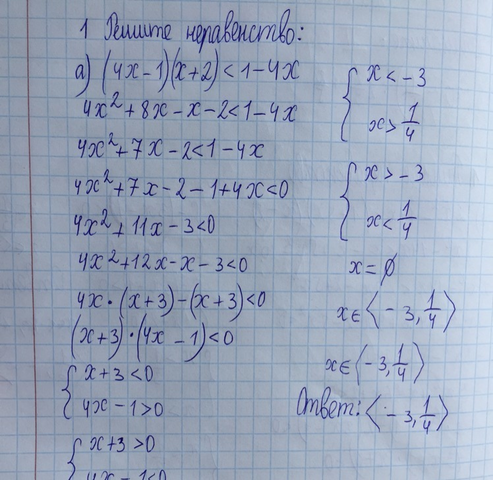 1 Решите неравенство:
а) (4x-1)(x+2)<1-4x
4x²+8x-x-2<1-4x
4x²+7x-2<1-4x
4x²+7x-2-1+4x<0
4x²+11x-3<0
4x²+12x-x-3<0
4x·(x+3)-(x+3)<0
(x+3)·(4x-1)<0
{ x+3<0
4x-1>0
{ x+3>0
4x-1<0
{ x<-3
x>1/4
{ x>-3
x<1/4
x=∅
x∈⟨-3,1/4⟩
x∈⟨-3,1/4⟩
Ответ:⟨-3,1/4⟩